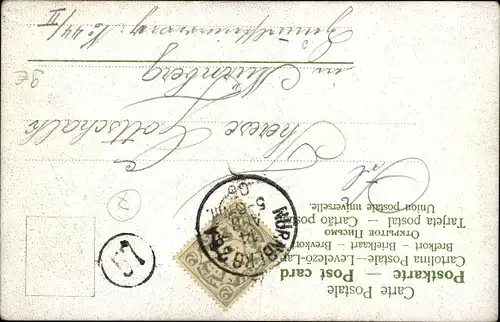 Carte Postale
Postkarte — Post card
Cartolina Postale — Levelező-Lap
Brefkort — Briefkaart — Brevkort
Открытое Письмо
Tarjeta postal — Cartão postal
Union postale universelle.
NÜRNBERG 2 B.A.
5
Frl.
Therese Gottschalk
in Nürnberg
No 44/II
13
7
3E